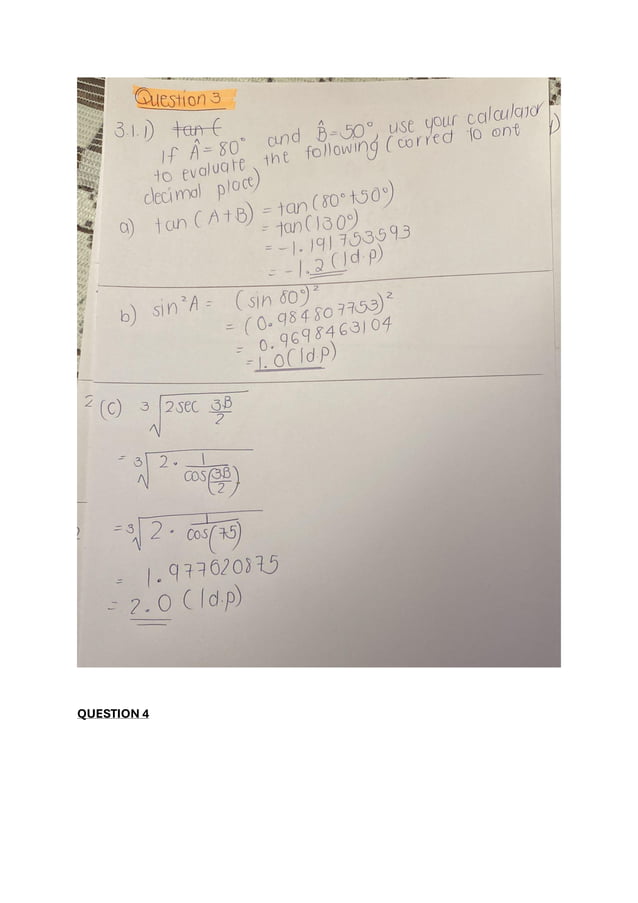 Question 3
3.1.1) tan (
If Â = 80° and B̂ = 50°, use your calculator
to evaluate the following (corred to ont
decimal place)
a) tan (A+B) = tan (80° + 50°)
= tan (130°)
= -1.191753593
= -1.2 (1d.p)
b) sin²A = (sin 80°)²
= (0.984807753)²
= 0.9698463104
= 1.0 (1d.p)
(c) ³√(2 sec 3B/2)
= ³√(2 · 1/cos(3B/2))
= ³√(2 · 1/cos(75))
= 1.977620875
= 2.0 (1d.p)
QUESTION 4